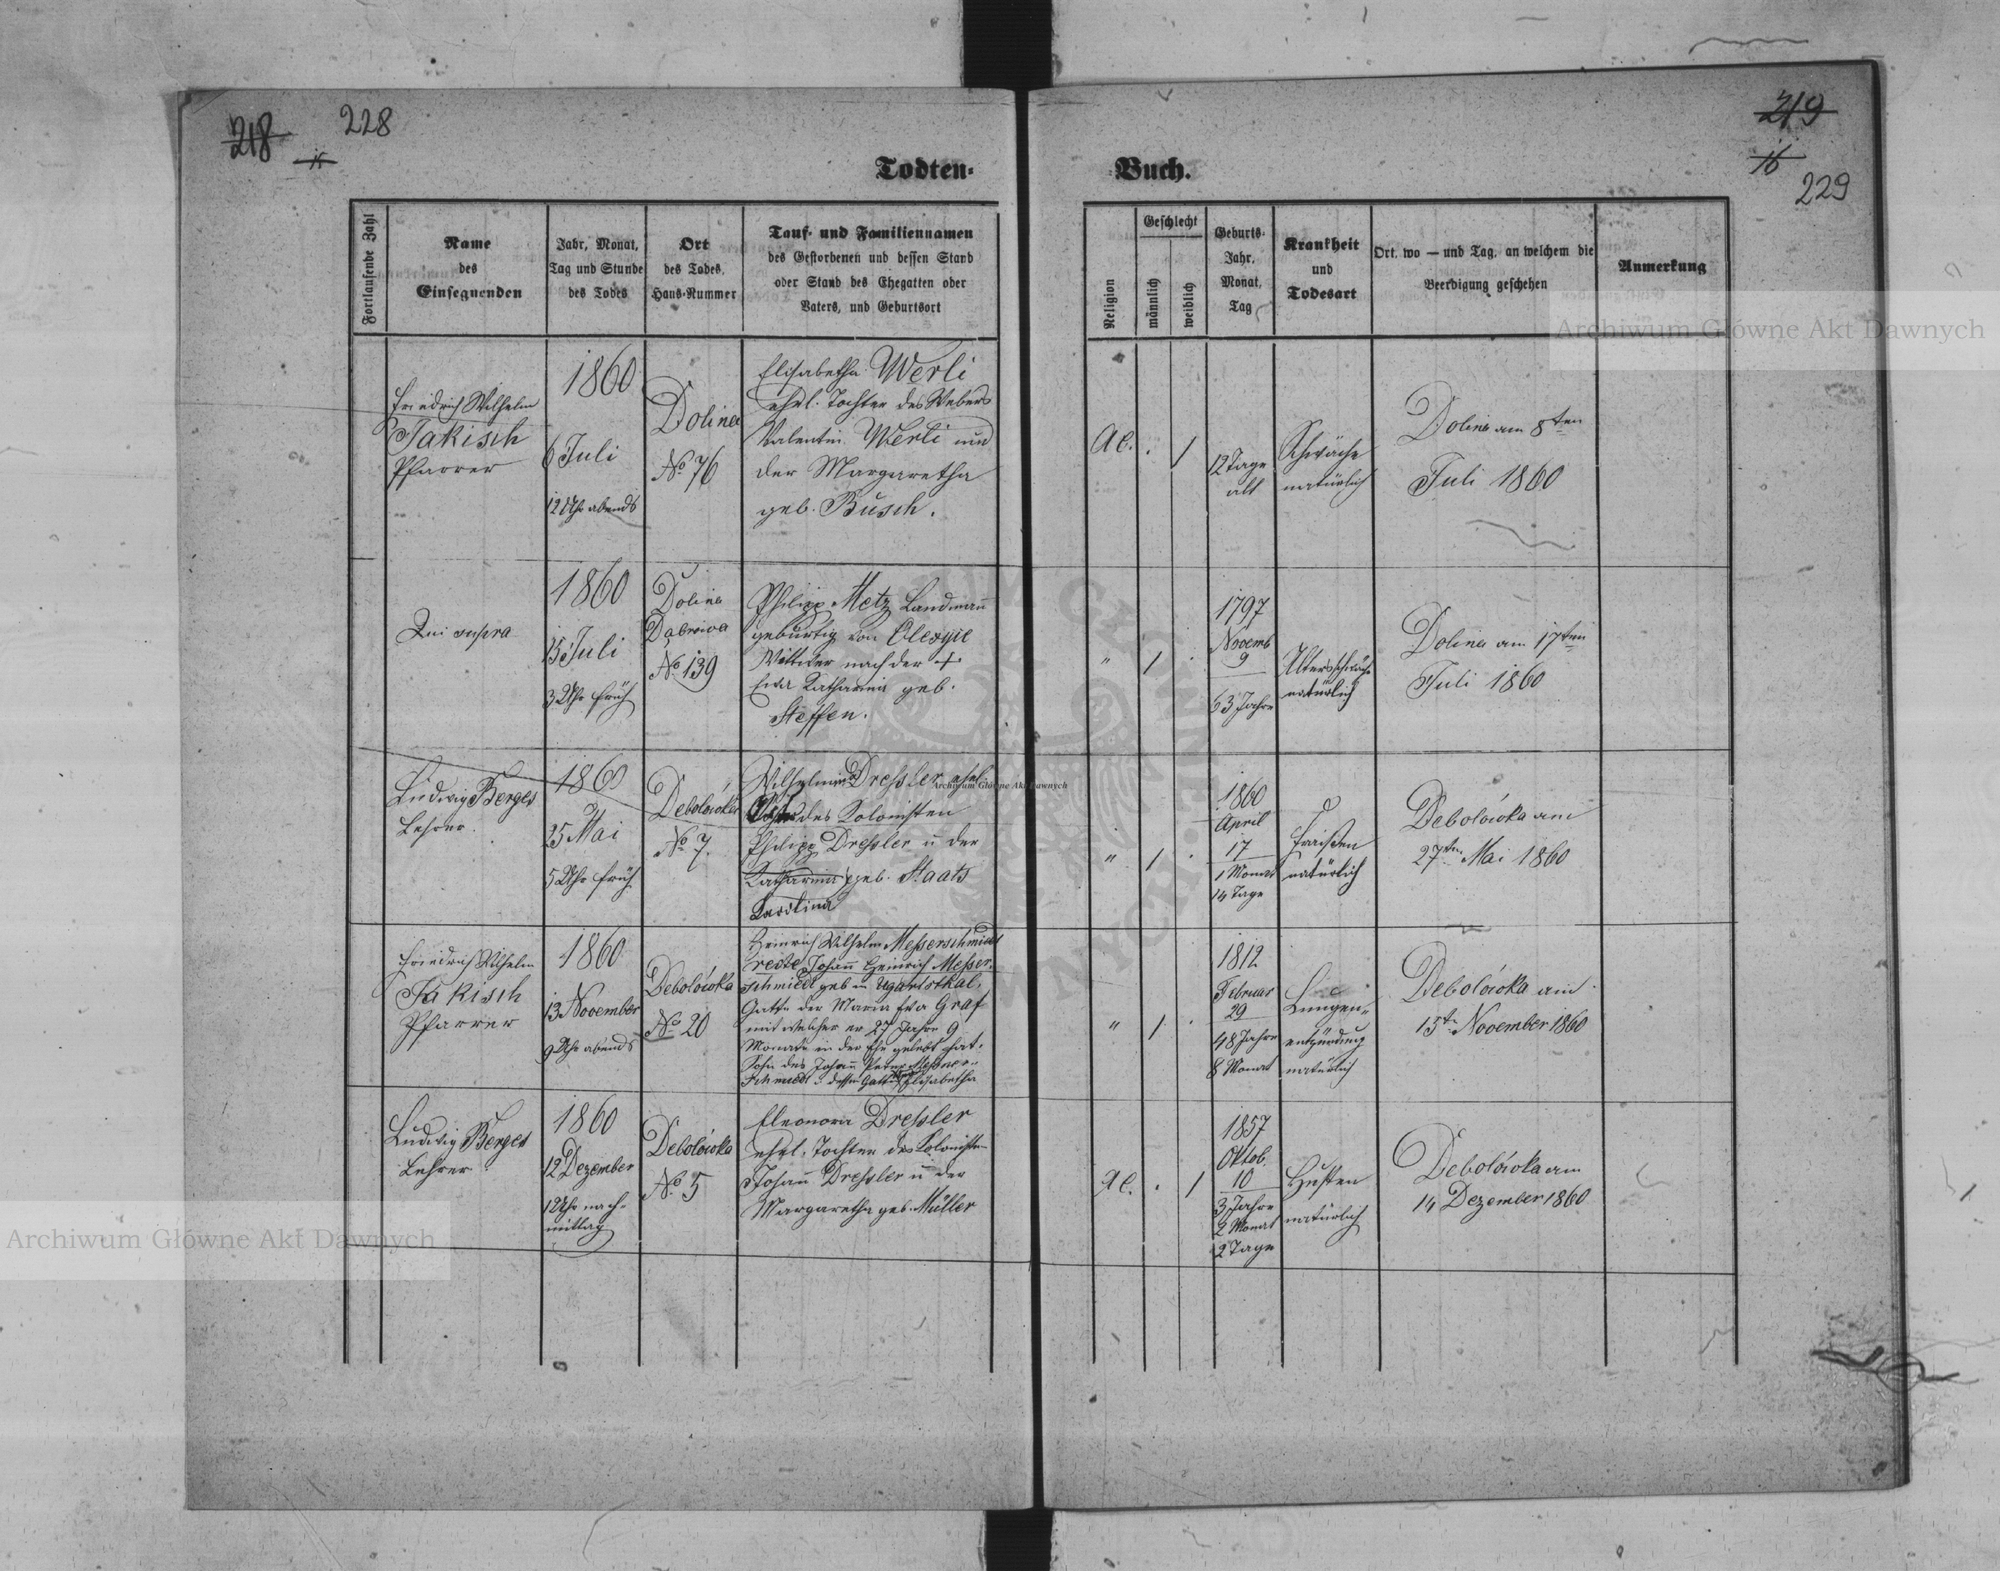 218
228
15
Todten-
Fortlaufende Zahl
Name
des
Einsegnenden
Jahr, Monat,
Tag und Stunde
des Todes
Ort
des Todes,
Haus-Nummer
Tauf- und Familiennamen
des Gestorbenen und dessen Stand
oder Stand des Ehegatten oder
Vaters, und Geburtsort
Friedrich Wilhelm
Jakisch
Pfarrer
1860
6 Juli
12 Uhr abends
Dolina
No 76
Elisabetha Werli
ehel. Tochter des Webers
Valentin Werli und
der Margaretha
geb. Busch.
Qui supra
1860
15 Juli
3 Uhr früh
Dolina
Dąbrowa
No 139
Philipp Metz Landmann
gebürtig von
Wittwer nach der +
Eva Katharina geb.
Steffen.
Ludwig Berges
Lehrer.
1860
25 Mai
5 Uhr früh
Debolówka
No 7.
Wilhelm Dreßler ehel.
des Kolonisten
Philipp Dreßler u der
Katharina geb. Staats
Karolina
Friedrich Wilhelm
Jakisch
Pfarrer
1860
13 November
9 Uhr abends
Debolówka
No 20
Heinrich Wilhelm Meßerschmiedt
recte Johann Heinrich Meßer-
schmiedt geb in Ugartsthal,
Gatte der Maria Eva Graf
mit welcher er 27 Jahre 9
Monate in der Ehe gelebt hat.
Sohn des Johann Peter Meßner-
schmiedt u dessen Gattin Elisabetha
Ludwig Berges
Lehrer
1860
12 Dezember
1 Uhr nach-
mittag
Debolówka
No 5
Eleonora Dreßler
ehel. Tochter des Kolonisten
Johann Dreßler u der
Margaretha geb. Müller
219
16
229
-Buch.
Religion
Geschlecht
männlich
weiblich
Geburts-
Jahr,
Monat,
Tag
Krankheit
und
Todesart
Ort, wo — und Tag, an welchem die
Beerdigung geschehen
Anmerkung
AC. . 1
12 Tage
alt
Schwäche
natürlich
Dolina am 8ten
Juli 1860
" 1 .
1797
Novemb
9
63 Jahre
Altersschwäche
natürlich
Dolina am 17ten
Juli 1860
" 1 .
1860
April
17
1 Monat
14 Tage
Fraißen
natürlich
Debolówka am
27ten Mai 1860
" 1 .
1812
Februar
29
48 Jahre
8 Monat
Lungen-
entzündung
natürlich
Debolówka am
15ten November 1860
AC. . 1
1857
Oktob.
10
3 Jahre
2 Monat
2 Tage
Husten
natürlich
Debolówka am
14 Dezember 1860
Archiwum Główne Akt Dawnych
Archiwum Główne Akt Dawnych
Archiwum Główne Akt Dawnych